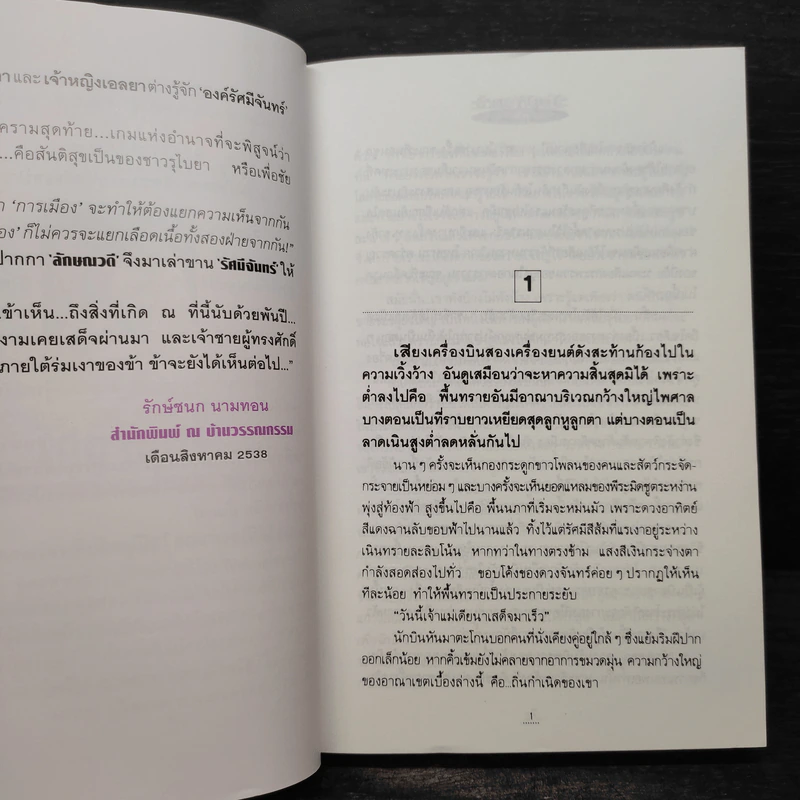 และ เจ้าหญิงเอลยาต่างรู้จัก 'องค์รัศมีจันทร์'
ครามสุดท้าย...เกมแห่งอำนาจที่จะพิสูจน์ว่า
...คือสันติสุขเป็นของชาวรุไบยา หรือเพื่อชัย
'การเมือง' จะทำให้ต้องแยกความเห็นจากกัน
ก็ไม่ควรจะแยกเลือดเนื้อทั้งสองฝ่ายจากกัน!"
ปากกา 'ลักษณวดี' จึงมาเล่าขาน 'รัศมีจันทร์' ให้
เข้าเห็น...ถึงสิ่งที่เกิด ณ ที่นี้นับด้วยพันปี...
งามเคยเสด็จผ่านมา และเจ้าชายผู้ทรงศักดิ์
ภายใต้ร่มเงาของข้า ข้าจะยังได้เห็นต่อไป..."
รักษ์ชนก นามทอน
สำนักพิมพ์ ณ บ้านวรรณกรรม
เดือนสิงหาคม 2538
1
เสียงเครื่องบินสองเครื่องยนต์ดังสะท้านก้องไปใน
ความเวิ้งว้าง อันดูเสมือนว่าจะหาความสิ้นสุดมิได้ เพราะ
ต่ำลงไปคือ พื้นทรายอันมีอาณาบริเวณกว้างใหญ่ไพศาล
บางตอนเป็นที่ราบยาวเหยียดสุดลูกหูลูกตา แต่บางตอนเป็น
ลาดเนินสูงต่ำลดหลั่นกันไป
นาน ๆ ครั้งจะเห็นกองกระดูกขาวโพลนของคนและสัตว์กระจัด-
กระจายเป็นหย่อม ๆ และบางครั้งจะเห็นยอดแหลมของพีระมิดชูตระหง่าน
พุ่งสู่ท้องฟ้า สูงขึ้นไปคือ พื้นนภาที่เริ่มจะหม่นมัว เพราะดวงอาทิตย์
สีแดงฉานลับขอบฟ้าไปนานแล้ว ทิ้งไว้แต่รัศมีสีส้มที่แรเงาอยู่ระหว่าง
เนินทรายละลิบโน้น หากทว่าในทางตรงข้าม แสงสีเงินกระจ่างตา
กำลังสอดส่องไปทั่ว ขอบโค้งของดวงจันทร์ค่อย ๆ ปรากฏให้เห็น
ทีละน้อย ทำให้พื้นทรายเป็นประกายระยับ
"วันนี้เจ้าแม่เดียนาเสด็จมาเร็ว"
นักบินหันมาตะโกนบอกคนที่นั่งเคียงคู่อยู่ใกล้ ๆ ซึ่งแย้มริมฝีปาก
ออกเล็กน้อย หากคิ้วเข้มยังไม่คลายจากอาการขมวดมุ่น ความกว้างใหญ่
ของอาณาเขตเบื้องล่างนี้ คือ...ถิ่นกำเนิดของเขา
1